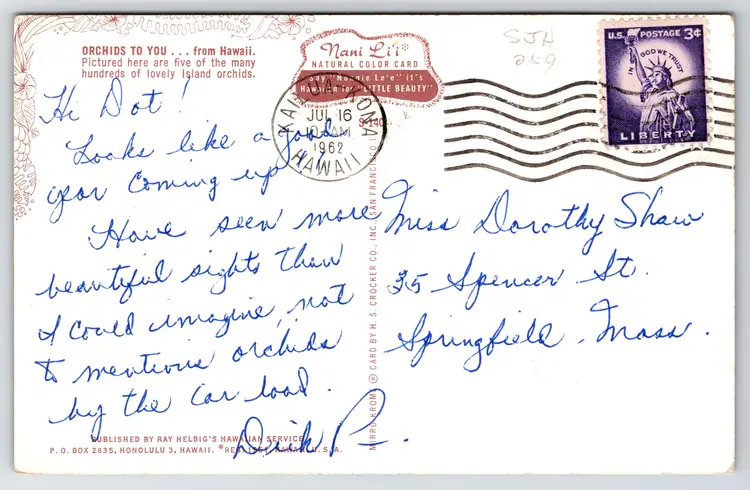 ORCHIDS TO YOU . . . from Hawaii.
Pictured here are five of the many
hundreds of lovely Island orchids.
Nani Li'i*
NATURAL COLOR CARD
Say "Nannie Le'e" it's
Hawaiian for "LITTLE BEAUTY"
SJH
259
U.S. POSTAGE 3¢
IN GOD WE TRUST
LIBERTY
KAILUA KONA
JUL 16
AM
1962
HAWAII
Hi Dot!
Looks like a good
year coming up!
Have seen more
beautiful sights than
I could imagine, not
to mentious orchids
by the car load.
Dick P.
Miss Dorothy Shaw
35 Spencer St.
Springfield, Mass.
MIRRO-KROME ® CARD BY H. S. CROCKER CO., INC., SAN FRANCISCO
PUBLISHED BY RAY HELBIG'S HAWAIIAN SERVICE
P. O. BOX 2835, HONOLULU 3, HAWAII. *REG. HAWAII, U.S.A.